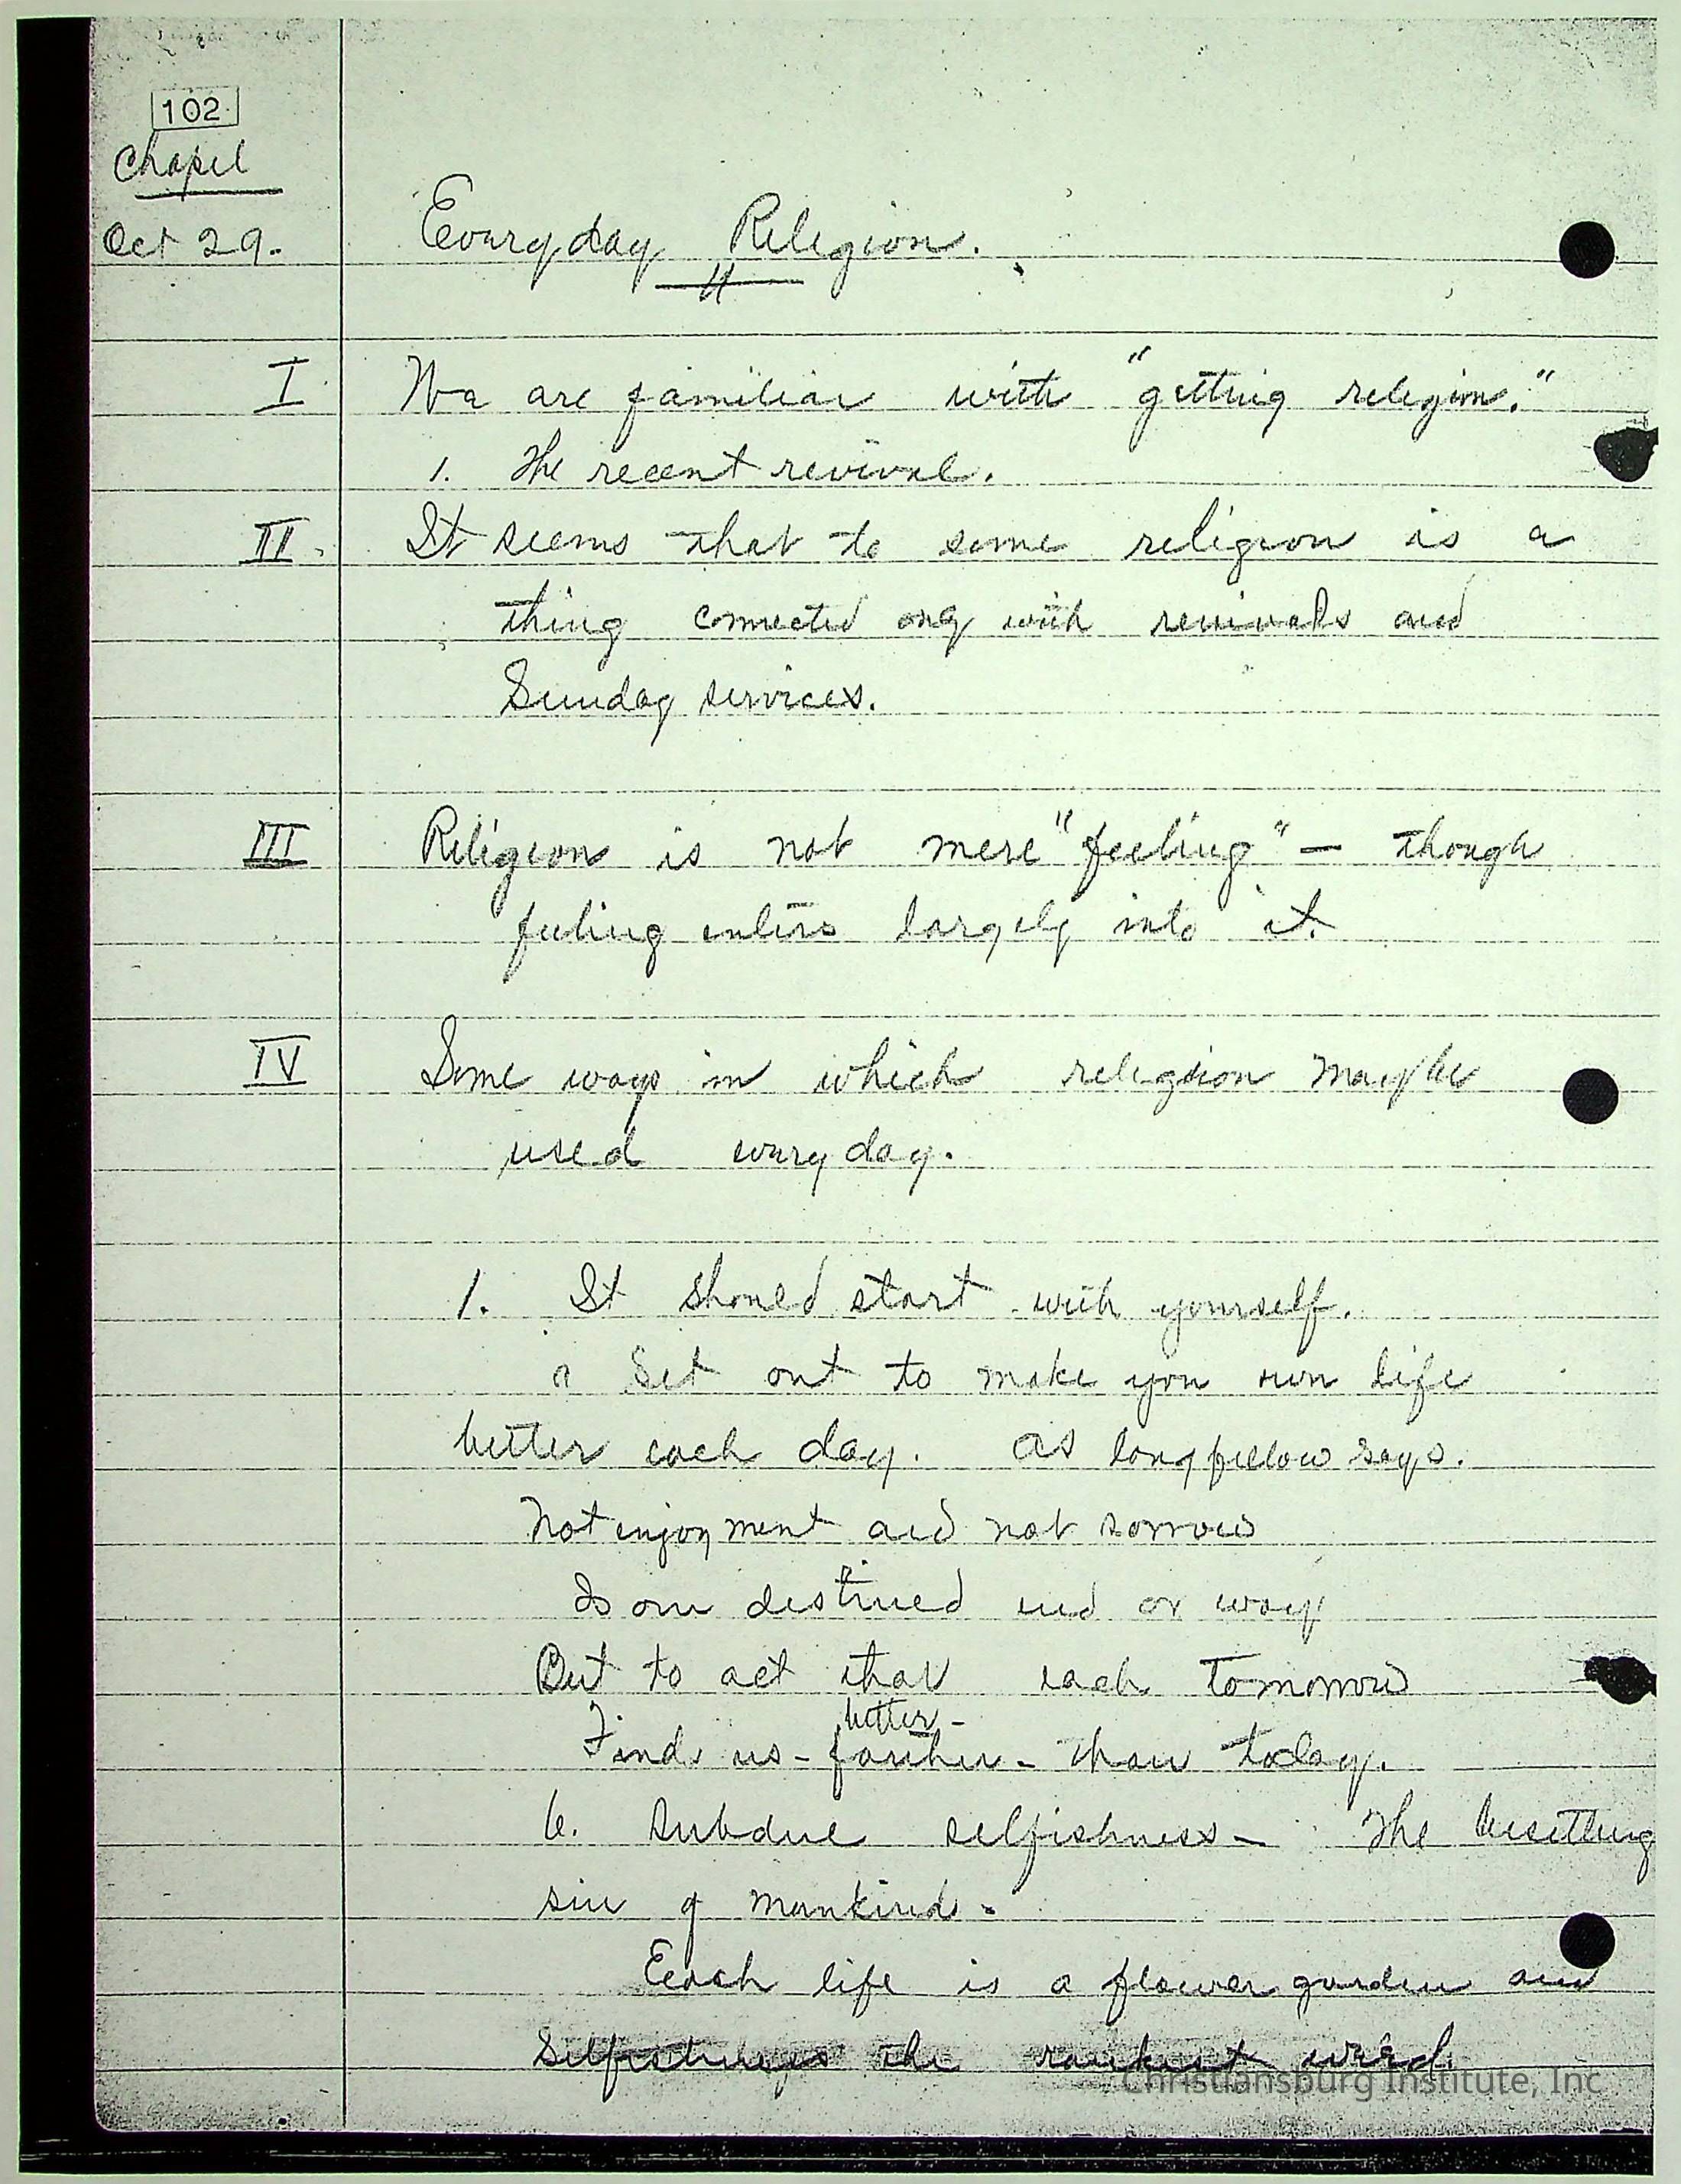 102
Chapel
Oct 29.
Everyday Religion.
I We are familiar with "getting religion."
1. The recent revival.
II. It seems that to some religion is a
thing connected only with revivals and
Sunday services.
III Religion is not mere "feeling" — though
feeling enters largely into it.
IV Some ways in which religion may be
used every day.
1. It should start with yourself.
a Set out to make you own life
better each day. As Longfellow says.
Not enjoyment and not sorrow
Is our destined end or way
But to act that each tomorrow
better -
Finds us - farther - than today.
b. Subdue selfishness - The besetting
sin of mankind -
Each life is a flower garden and
Selfishness the rankest weed.
Christiansburg Institute, Inc